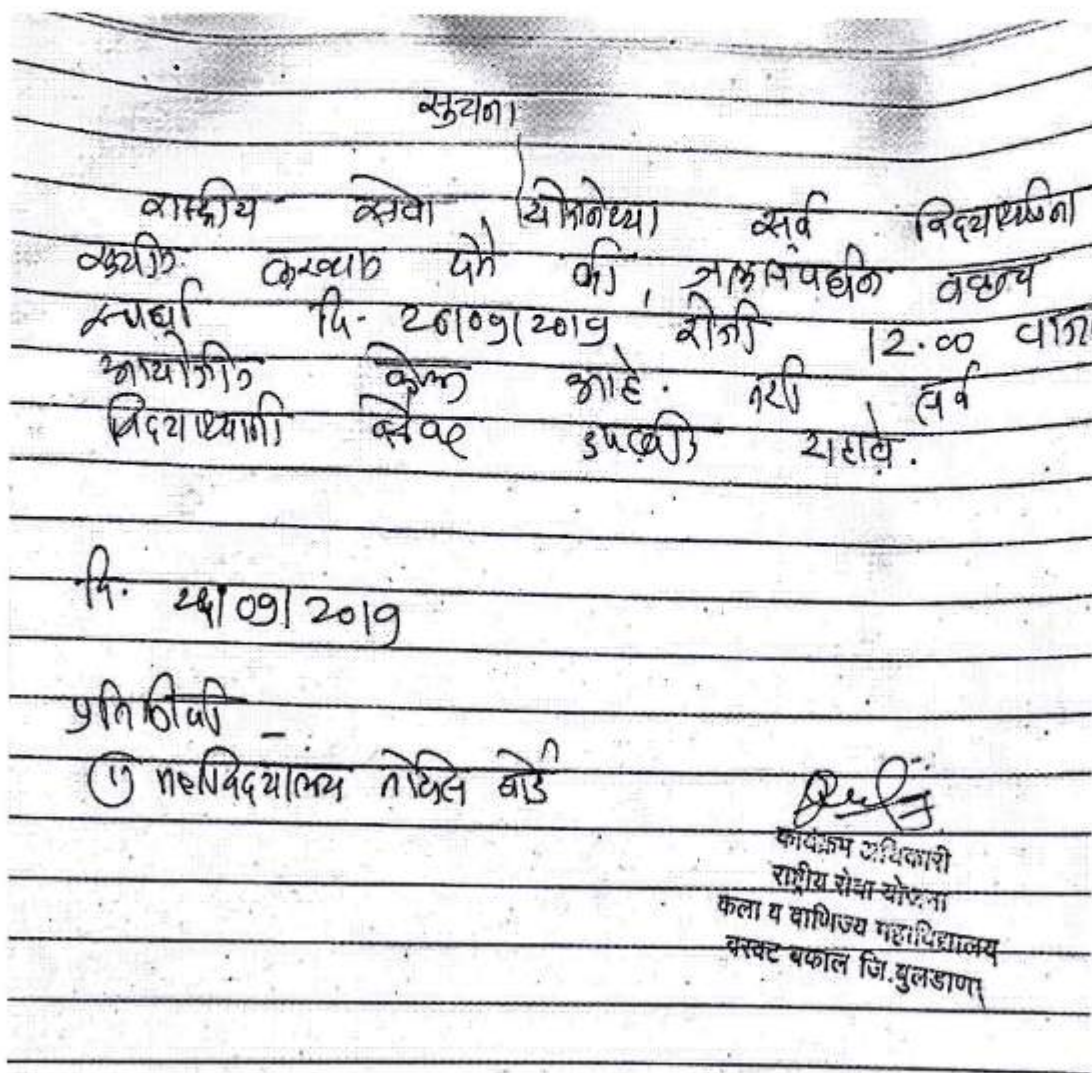 सुचना
राष्ट्रीय सेवा योजनेच्या सर्व विद्यार्थ्यांना
सुचीत करण्यात येते की, वक्तृत्व
स्पर्धा दि. 26/09/2019 रोजी 12.00 वाजता
आयोजित केली आहे. तरी सर्व
विद्यार्थ्यांनी वेळेवर उपस्थित राहावे.
दि. /09/2019
प्रतिलिपी -
① महाविद्यालय नोटीस बोर्ड
कार्यक्रम अधिकारी
राष्ट्रीय सेवा योजना
कला व वाणिज्य महाविद्यालय
वरवट बकाल जि.बुलडाणा